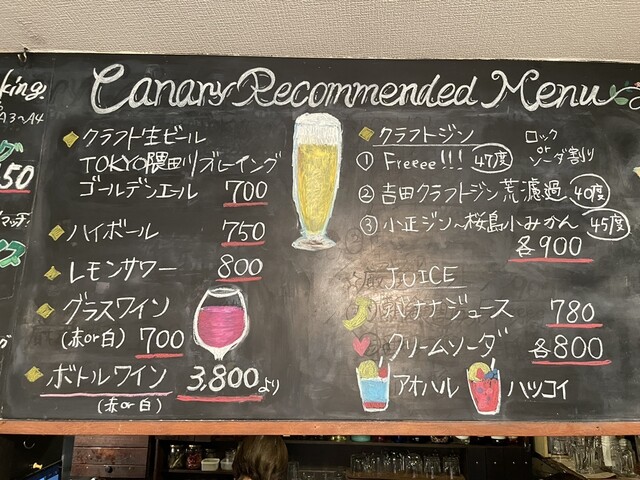 Canary Recommended Menu
king.
A3〜A4
50
クラフト生ビール
TOKYO隅田川ブルーイング
ゴールデンエール 700
ハイボール 750
レモンサワー 800
グラスワイン
(赤or白) 700
ボトルワイン 3,800より
(赤or白)
クラフトジン
ロック
or
ソーダ割り
① Freeee!!! 47度
② 吉田クラフトジン荒濾過 40度
③ 小正ジン〜桜島小みかん 45度
各900
JUICE
バナナジュース 780
クリームソーダ 各800
アオハル ハツコイ